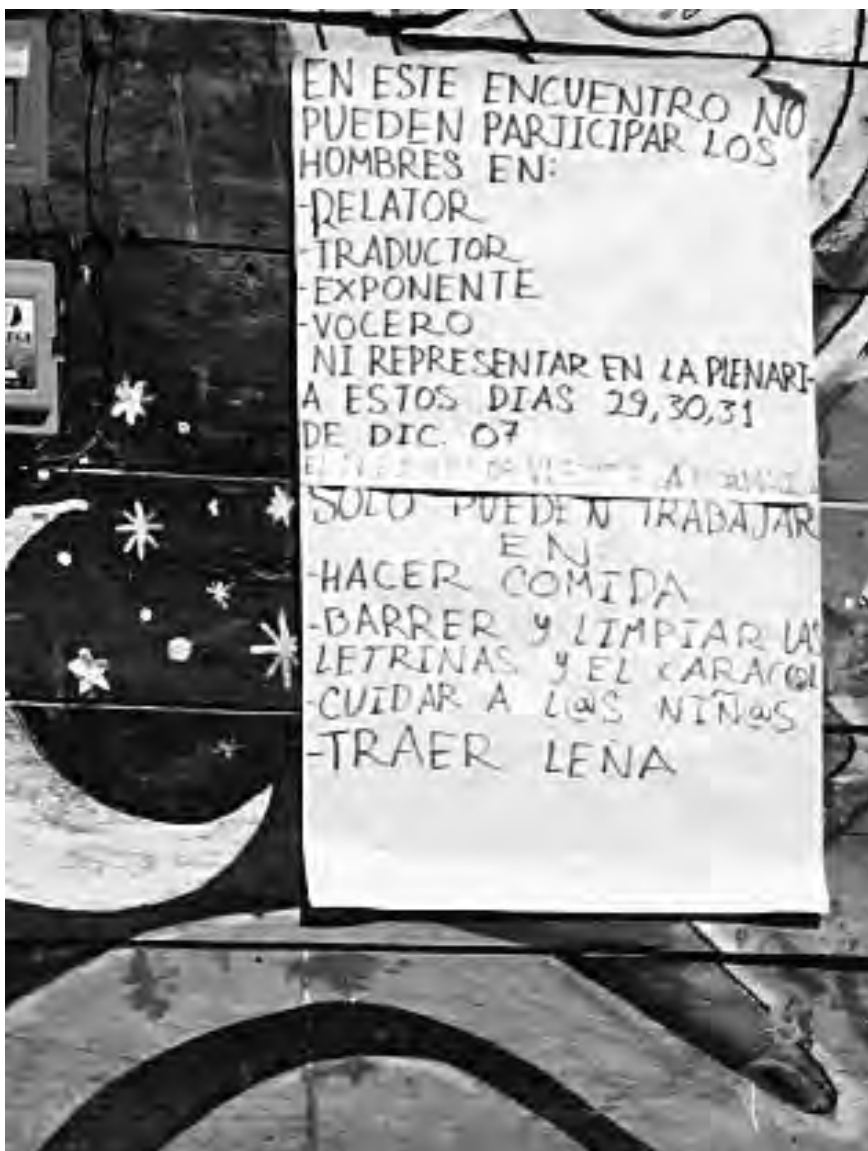 EN ESTE ENCUENTRO NO
PUEDEN PARTICIPAR LOS
HOMBRES EN:
-RELATOR
-TRADUCTOR
-EXPONENTE
-VOCERO
NI REPRESENTAR EN LA PLENARI-
A ESTOS DIAS 29,30,31
DE DIC. 07
SOLO PUEDEN TRABAJAR
EN
-HACER COMIDA
-BARRER Y LIMPIAR LAS
LETRINAS Y EL CARACOL
-CUIDAR A L@S NIÑ@S
-TRAER LEÑA